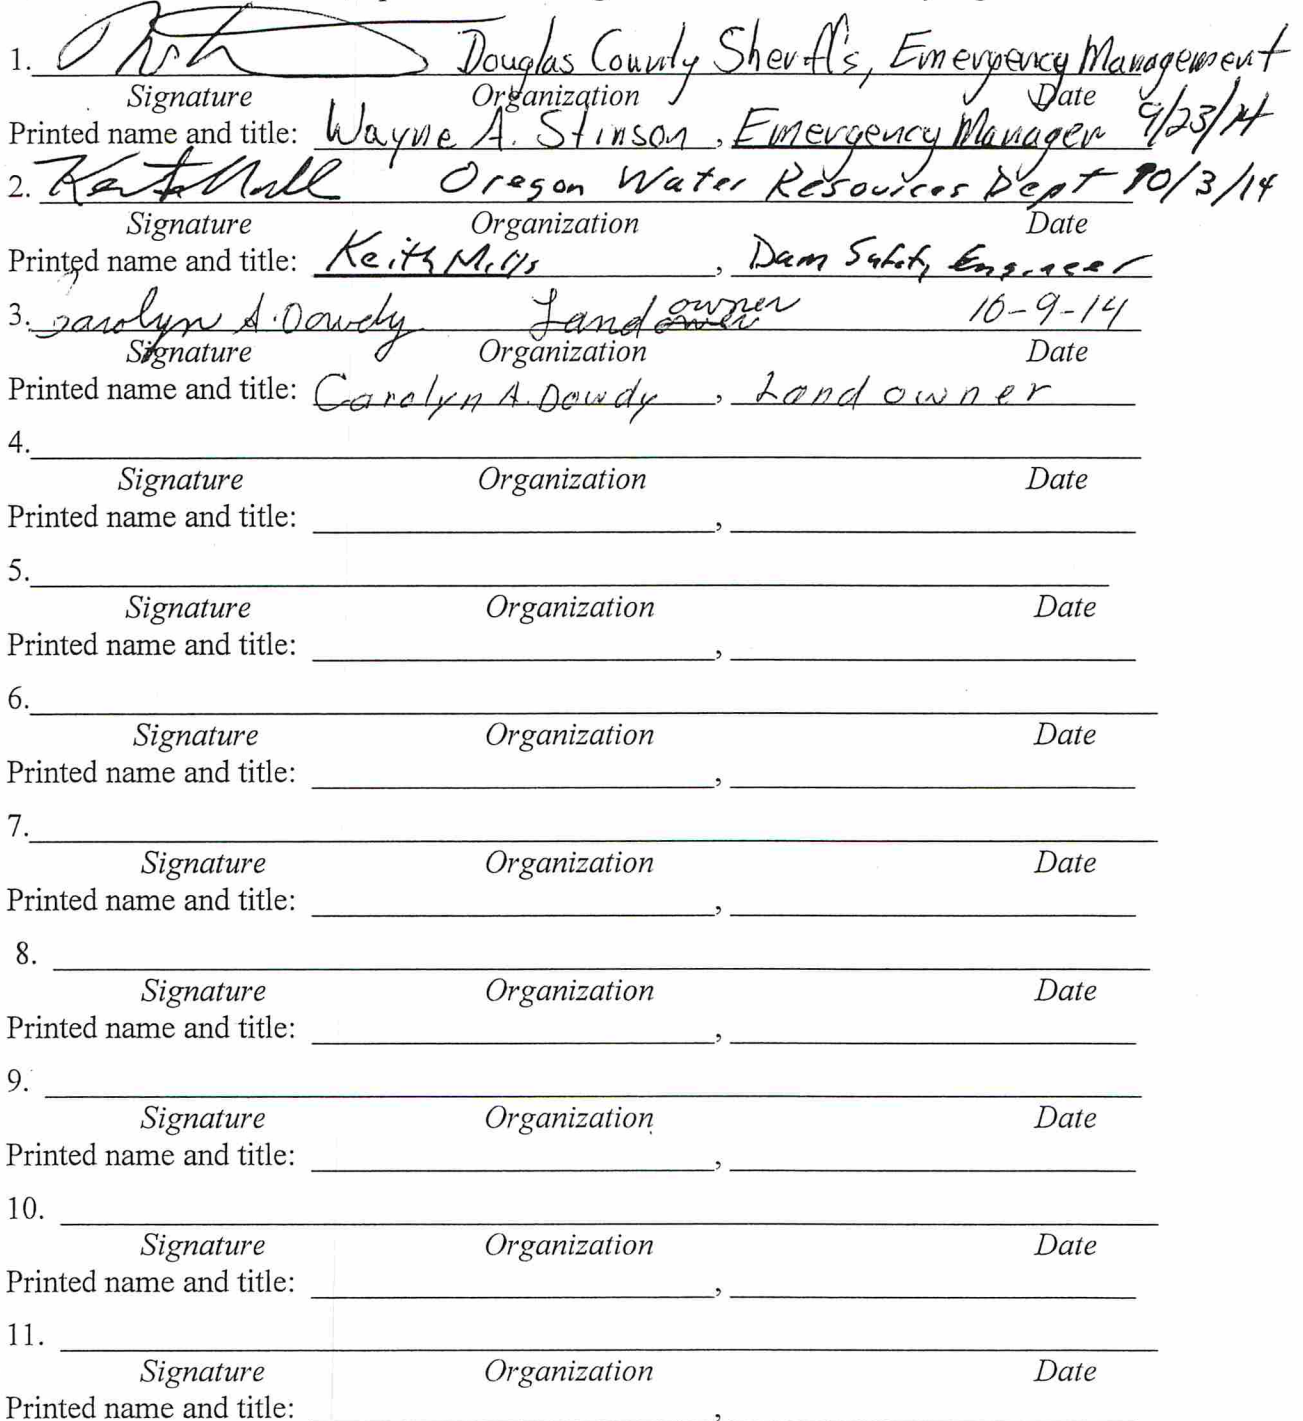 1. Douglas County Sheriff's, Emergency Management
Signature Organization Date
Printed name and title: Wayne A. Stinson, Emergency Manager 9/23/14
2. Oregon Water Resources Dept 10/3/14
Signature Organization Date
Printed name and title: Keith Mills, Dam Safety Engineer
3. Carolyn A. Dowdy Land owner 10-9-14
Signature Organization Date
Printed name and title: Carolyn A. Dowdy, Land owner
4.
Signature Organization Date
Printed name and title: ,
5.
Signature Organization Date
Printed name and title: ,
6.
Signature Organization Date
Printed name and title: ,
7.
Signature Organization Date
Printed name and title: ,
8.
Signature Organization Date
Printed name and title: ,
9.
Signature Organization Date
Printed name and title: ,
10.
Signature Organization Date
Printed name and title: ,
11.
Signature Organization Date
Printed name and title: ,